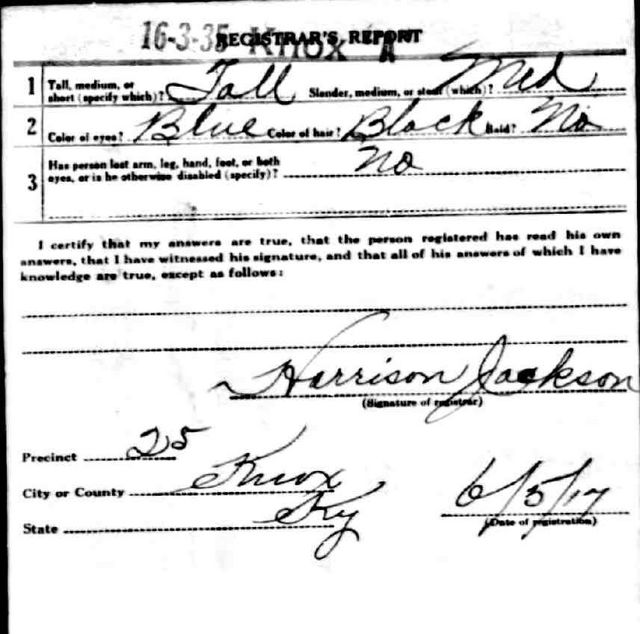 16-3-35 Knox A
REGISTRAR'S REPORT
1 Tall, medium, or short (specify which)? Tall Slender, medium, or stout (which)? Med
2 Color of eyes? Blue Color of hair? Black Bald? No
3 Has person lost arm, leg, hand, foot, or both
eyes, or is he otherwise disabled (specify)? No
I certify that my answers are true, that the person registered has read his own
answers, that I have witnessed his signature, and that all of his answers of which I have
knowledge are true, except as follows:
Harrison Jackson
(Signature of registrar)
Precinct 25
City or County Knox
State Ky
6/5/17
(Date of registration)